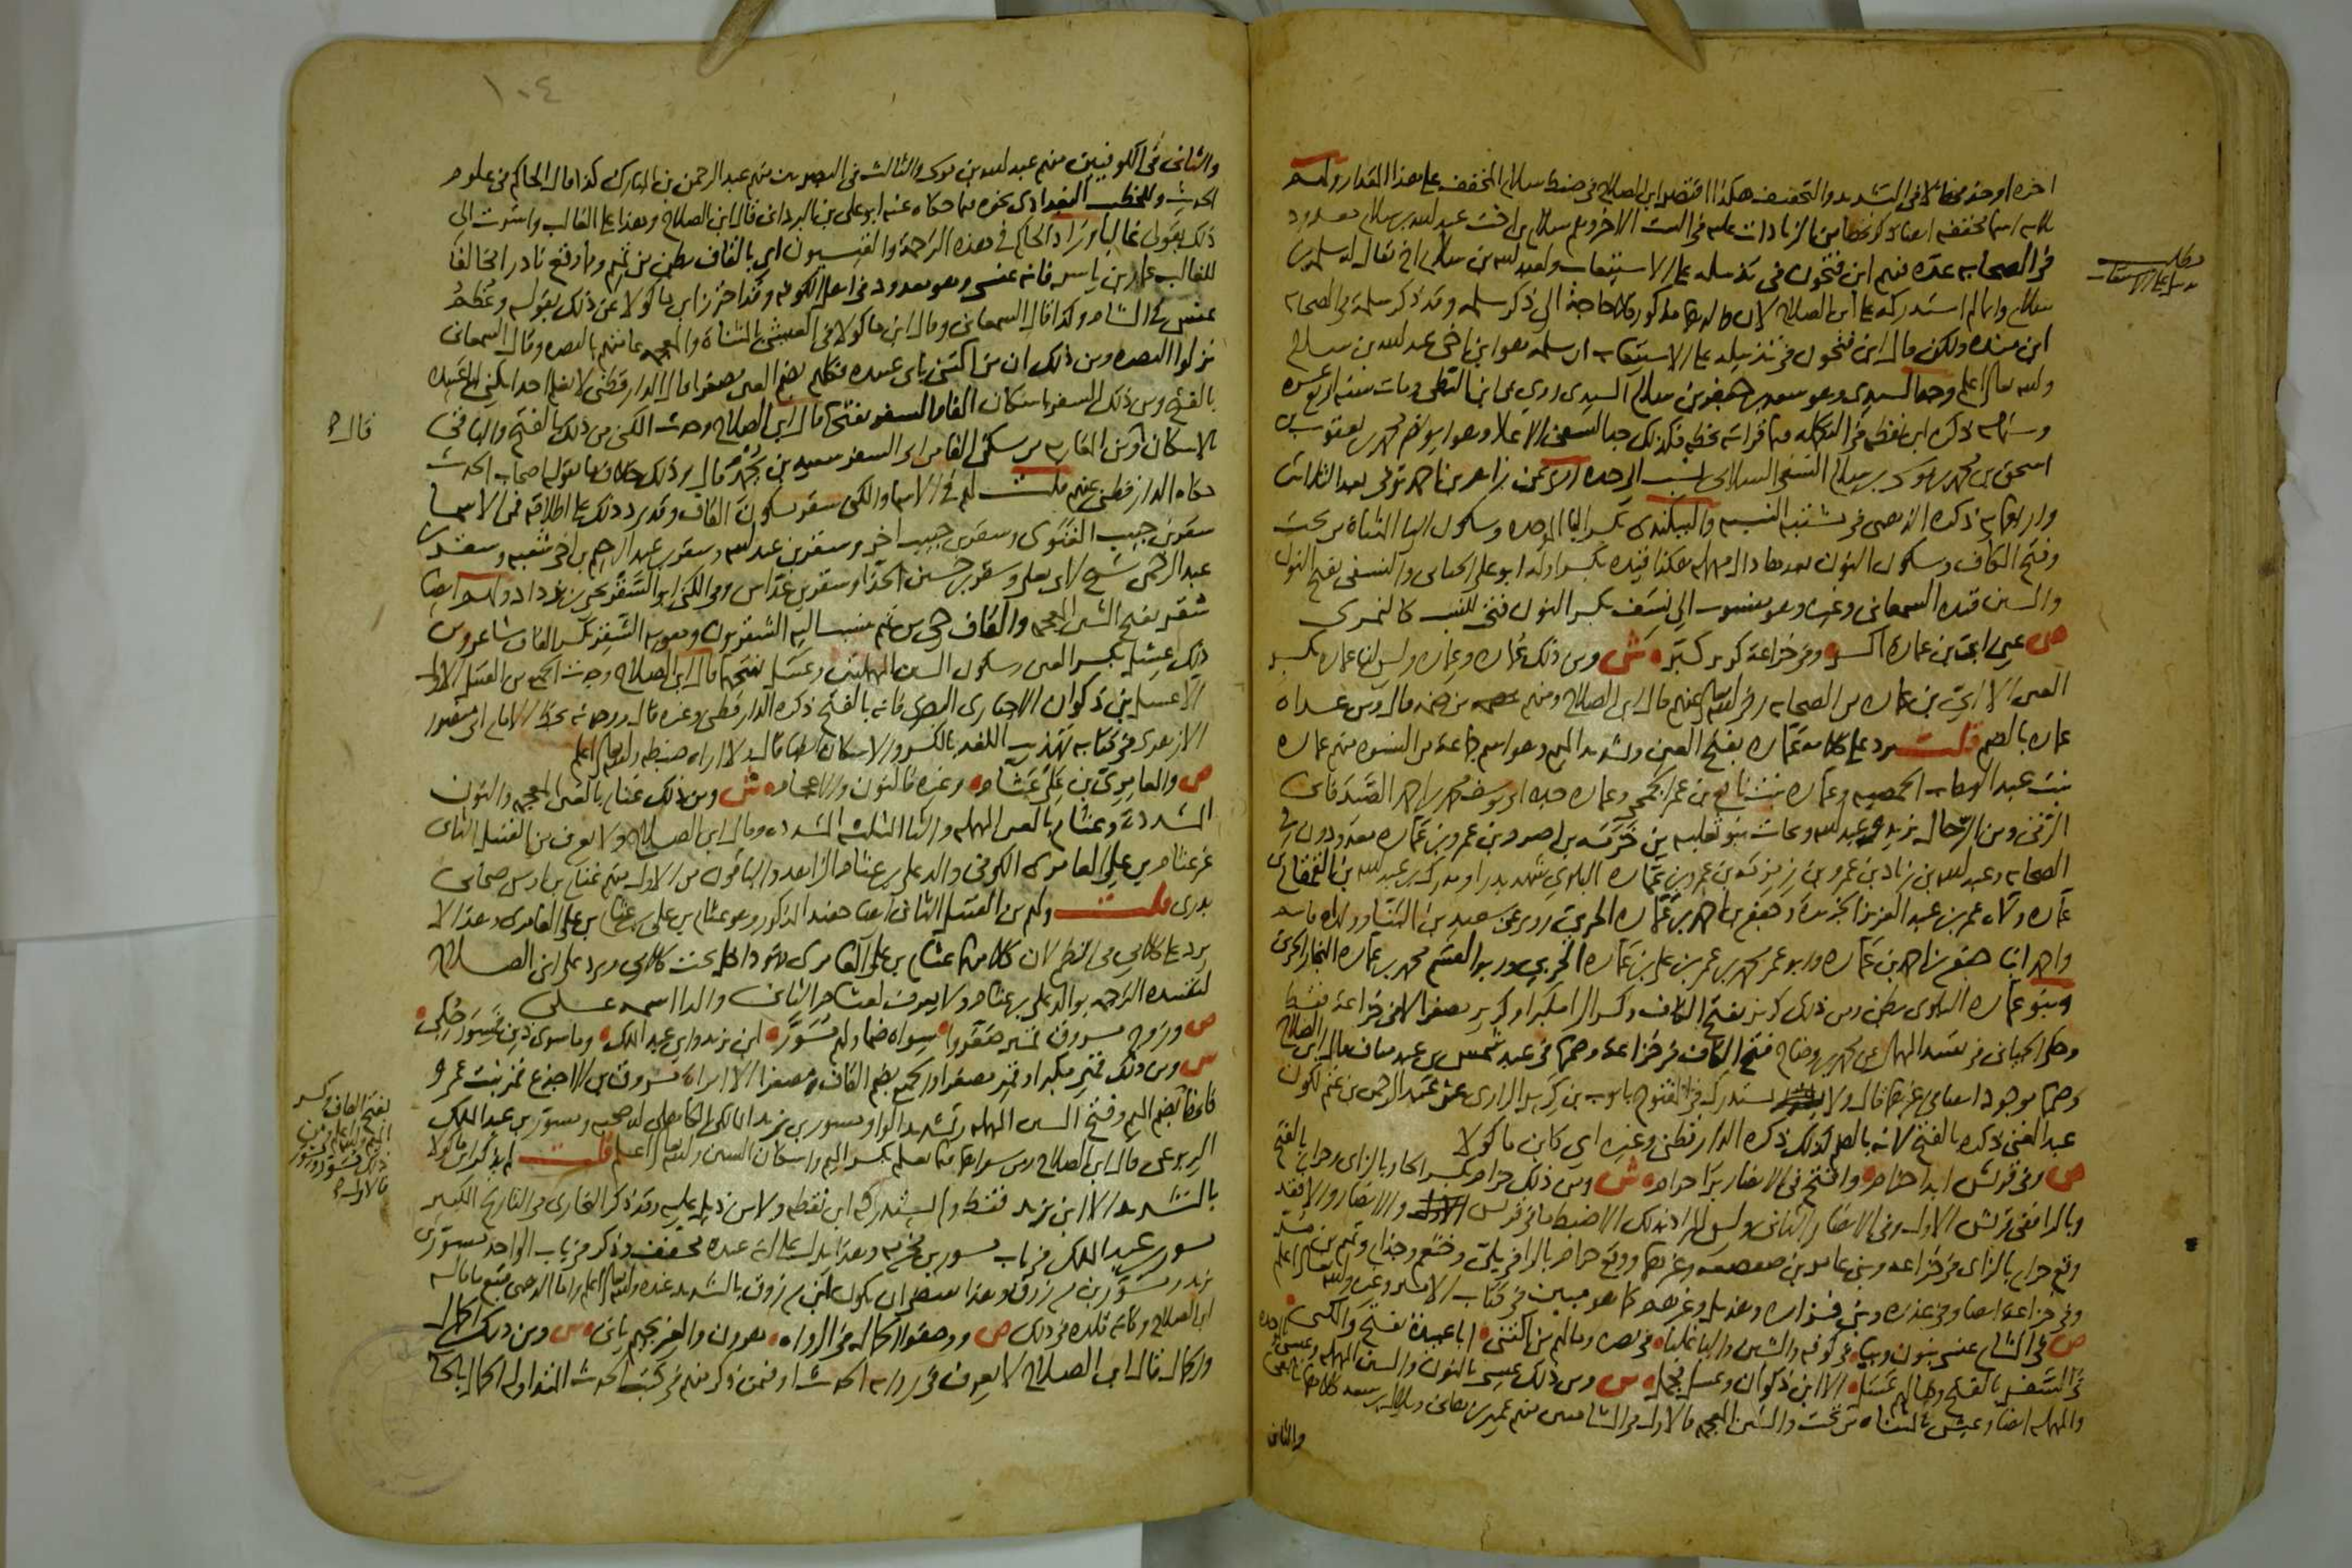 اخره او حدثه مخالفا في التشديد والتخفيف هكذا اقتصر ابن الصلاح في ضبط سلام المخفف على هذا المقدار ولهم
ثلاثة اسما مخففة ايضا ذكر بعضها من الزيادات عليه في البيت الاخر وهم سلام بن اخت عبد الله بن سلام معدود
في الصحابة عده منهم ابن فتحون في تذييله على الاستيعاب ولعبد الله بن سلام اخ يقال له سلمة بن
سلام وانما لم استدركه على ابن الصلاح لان والدهما مذكور فلا حاجة الى ذكر سلمة وقد ذكر سلمة في الصحابة
ابن منده ولكن قال ابن فتحون في تذييله على الاستيعاب ان سلمة هو ابن اخي عبد الله بن سلام
والله تعالى اعلم وجد السيدي وهو سعد بن جعفر بن سلام السيدي روى عن ابن البطي ومات سنة اربع عشرة
وستمائة ذكره ابن نقطة في التكملة فيما قراته بخطه وكذلك جد النسفي الاعلا وهو ابو نصر محمد بن يعقوب بن
اسحق بن محمد بن موسى بن سلام النسفي السلامي نسب الى جده روى عن زاهر بن احمد توفي بعد الثلاثين
واربعمائة ذكره الذهبي في مشتبه النسبة والبيكندي بكسر البا الموحدة وسكون اليا المثناة من تحت
وفتح الكاف وسكون النون بعدها دال مهملة هكذا قيده بكسر اوله ابو علي الجياني والنسفي بفتح النون
والسين قيده السمعاني وغيره وهو منسوب الى نسف بكسر النون فتح للنسب كالنمري
ص عين ابي بن عمارة اكسر وفي خزاعة كريز كبر ش ومن ذلك عمارة وعمارة وليس لنا عمارة بكسر
العين الا ابي بن عمارة من الصحابة رضي الله تعالى عنهم قال ابن الصلاح ومنهم من ضمه قال ومن عداه
عمارة بالضم قلت يرد على كلامه عمارة بفتح العين وتشديد الميم وهو اسم جماعة من النسوة منهم عمارة
بنت عبد الوهاب الحمصية وعمارة بنت نافع بن عمر الجمحي وعمارة جدة ابي يوسف محمد بن احمد الصيدلاني
الرقي ومن الرجال يزيد وعبد الله وبحاث بنو ثعلبة بن خزمة بن اصرم بن عمرو بن عمارة معدودون في
الصحابة وعبد الله بن زياد بن عمرو بن زمزمة بن عمرو بن عمارة البلوي شهد بدرا ومدرك بن عبد الله بن القمقام بن
عمارة ولاه عمر بن عبد العزيز الجزيرة وجعفر بن احمد بن عمارة الحربي روى عن سعيد بن البنا وولداه قاسم
واحمد ابنا جعفر بن احمد بن عمارة وابو عمر محمد بن عمر بن علي بن عمارة الحربي وابو القسم محمد بن عمارة النجار الحربي
وبنو عمارة البلوي بطن ومن ذلك كريز بفتح الكاف وكسر الرا مكبرا وكريز مصغرا الا في خزاعة فقط
وحكى الجياني في تقييد المهمل عن محمد بن وضاح فتح الكاف في خزاعة وضمها في عبد شمس بن عبد مناف قال ابن الصلاح
وضمها موجود ايضا في غيرهما قال ولا يستدرك في المفتوح بايوب بن كريز الراوي عن عبد الرحمن بن غنم لكون
عبد الغني ذكره بالفتح لانه بالضم كذلك ذكره الدارقطني وغيره اي كابن ماكولا
ص وفي قريش ابدا حزام وافتح في الانصار برا حرام ش ومن ذلك حزام بكسر الحا وبالزاي وحرام بالفتح
وبالرا ففي قريش الاول وفي الانصار الثاني وليس المراد بذلك الا ضبط ما في قريش والانصار والا فقد
وقع حزام بالزاي في خزاعة وبني عامر بن صعصعة وغيرهما ووقع حرام بالرا في بلي وخثعم وجذام وتميم بن مر
وفي خزاعة ايضا وفي عذرة وبني فزارة وهذيل وغيرهم كما هو مبين في كتاب الامير وغيره والله تعالى اعلم
ص في الشام عنسي بنون وببا في كوفة والشين واليا غلبا في بصرة وما لهم من اكتنى ابا عبيدة بفتح والكنى
في السفر بالفتح وما لهم عسل الا ابن ذكوان وعسل فجمل ش ومن ذلك عنسي بالنون والسين المهملة وعبسي بالموحدة
والمهملة ايضا وعيشي بالمثناة من تحت والشين المعجمة فالاول في الشاميين منهم عمير بن هاني وبلال بن سعد كلاهما تابعي
والثاني
مطلب
تذييل على الاستيعاب
١٠٤
والثاني في الكوفيين منهم عبيد الله بن موسى والثالث في البصريين منهم عبد الرحمن بن المبارك كذا قال الحاكم في علوم
الحديث وللخطيب البغدادي نحوه فيما حكاه عنه ابو علي بن البرداني قال ابن الصلاح وهذا على الغالب واشرت الى
ذلك بقولي غالبا وزاد الحاكم في هذه الترجمة والقيسيون اي بالقاف بطن من تميم وما وقع نادرا مخالفا
للغالب عمار بن ياسر فانه عنسي وهو معدود في اهل الكوفة وقد احترز ابن ماكولا عن ذلك بقوله وعظم
عنس في الشام وكذا قال السمعاني وقال ابن ماكولا في العيشي بالمثناة والمعجمة عامتهم بالبصرة وقال السمعاني
نزلوا البصرة ومن ذلك ان من اكتنى بابي عبيدة فكلهم بضم العين مصغرا قال الدارقطني لا نعلم احدا يكنى ابا عبيدة
بالفتح ومن ذلك السفر باسكان الفا والسفر بفتحها قال ابن الصلاح وجدت الكنى من ذلك بالفتح والباقي
بالاسكان ومن المغاربة من سكن الفا من ابي السفر سعيد بن يحمد قال وذلك خلاف ما يقوله اصحاب الحديث
حكاه الدارقطني عنهم قلت لهم في الاسما والكنى سقر بسكون القاف وقد يرد ذلك على اطلاقه ففي الاسما
سقر بن حبيب الغنوي وسقر بن حبيب اخر وسقر بن عبد الله وسقر بن عبد الرحيم بن اخي شعبة وسقر بن
عبد الرحمن شيخ لابي يعلى وسقر بن حسين الحذا وسقر بن عداس وفي الكنى ابو السقر يحيى بن يزداد ولهم ايضا
شقر بفتح الشين المعجمة والقاف حي من تميم ينسب اليه الشقريون ومعوية الشقر بكسر القاف شاعر ومن
ذلك عسل بكسر العين وسكون السين المهملتين وعسل بفتحهما قال ابن الصلاح وجدت الجميع من القبيل الاول
الا عسل بن ذكوان الاخباري البصري فانه بالفتح ذكره الدارقطني وغيره قال ووجدته بخط الامام ابي منصور
الازهري في كتابه تهذيب اللغة بالكسر والاسكان ايضا قال ولا اراه ضبطه والله تعالى اعلم
ص والعامري بن علي عثام وغيره فالنون والاعجام ش ومن ذلك غنام بالغين المعجمة والنون
المشددة وعثام بالعين المهملة والثا المثلثة المشددة وقال ابن الصلاح ولا يعرف من القبيل الثاني
غير عثام بن علي العامري الكوفي والد علي بن عثام الزاهد والباقون من الاول منهم غنام بن اوس صحابي
بدري قلت ولهم من القبيل الثاني ايضا حفيد المذكور وهو عثام بن علي بن عثام بن علي العامري وهذا لا
يرد على كلامي في النظم لان كلا منهما عثام بن علي العامري فهو داخل تحت كلامي ويرد على ابن الصلاح
لتقييده الترجمة بوالد علي بن عثام ولا يعرف لعثام الثاني ولد اسمه علي
ص وزوج مسروق قمير صغروا سواه ضما ولهم مسور ابن يزيد وابن عبد الملك وما سوى ذين فمسور حكي
ش ومن ذلك قمير مكبرا وقمير مصغرا والجميع بضم القاف مصغرا الا امراة مسروق بن الاجدع قمير بنت عمرو
فانها بضم الميم وفتح السين المهملة وتشديد الواو مسور بن يزيد المالكي الكاهلي له صحبة ومسور بن عبد الملك
اليربوعي قال ابن الصلاح ومن سواهما فيما نعلم بكسر الميم واسكان السين والله تعالى اعلم قلت لم يذكر ابن ماكولا
بالتشديد الا ابن يزيد فقط ولم يستدركه ابن نقطة ولا من ذيل عليه وقد ذكر البخاري في التاريخ الكبير
مسور بن عبد الملك في باب مسور بن مخرمة وهذا يدل على انه عنده مخفف وذكر في باب الواحد مسور بن
يزيد ومسور بن مرزوق وهذا يقتضي ان يكون ابن مرزوق بالتشديد عنده والله تعالى اعلم واما الذهبي فتبع ما قاله
ابن الصلاح وكانه قلده في ذلك ص ووصفوا الحمال في الرواة هرون والغير بجيم ياتي ش ومن ذلك الحمال
والجمال قال ابن الصلاح لا يعرف في رواة الحديث او فيمن ذكر منهم في كتب الحديث المتداولة الحمال بالحا
قال
بفتح القاف وكسر
الميم والله اعلم ومن
ذلك مسور ومسور
فالاول